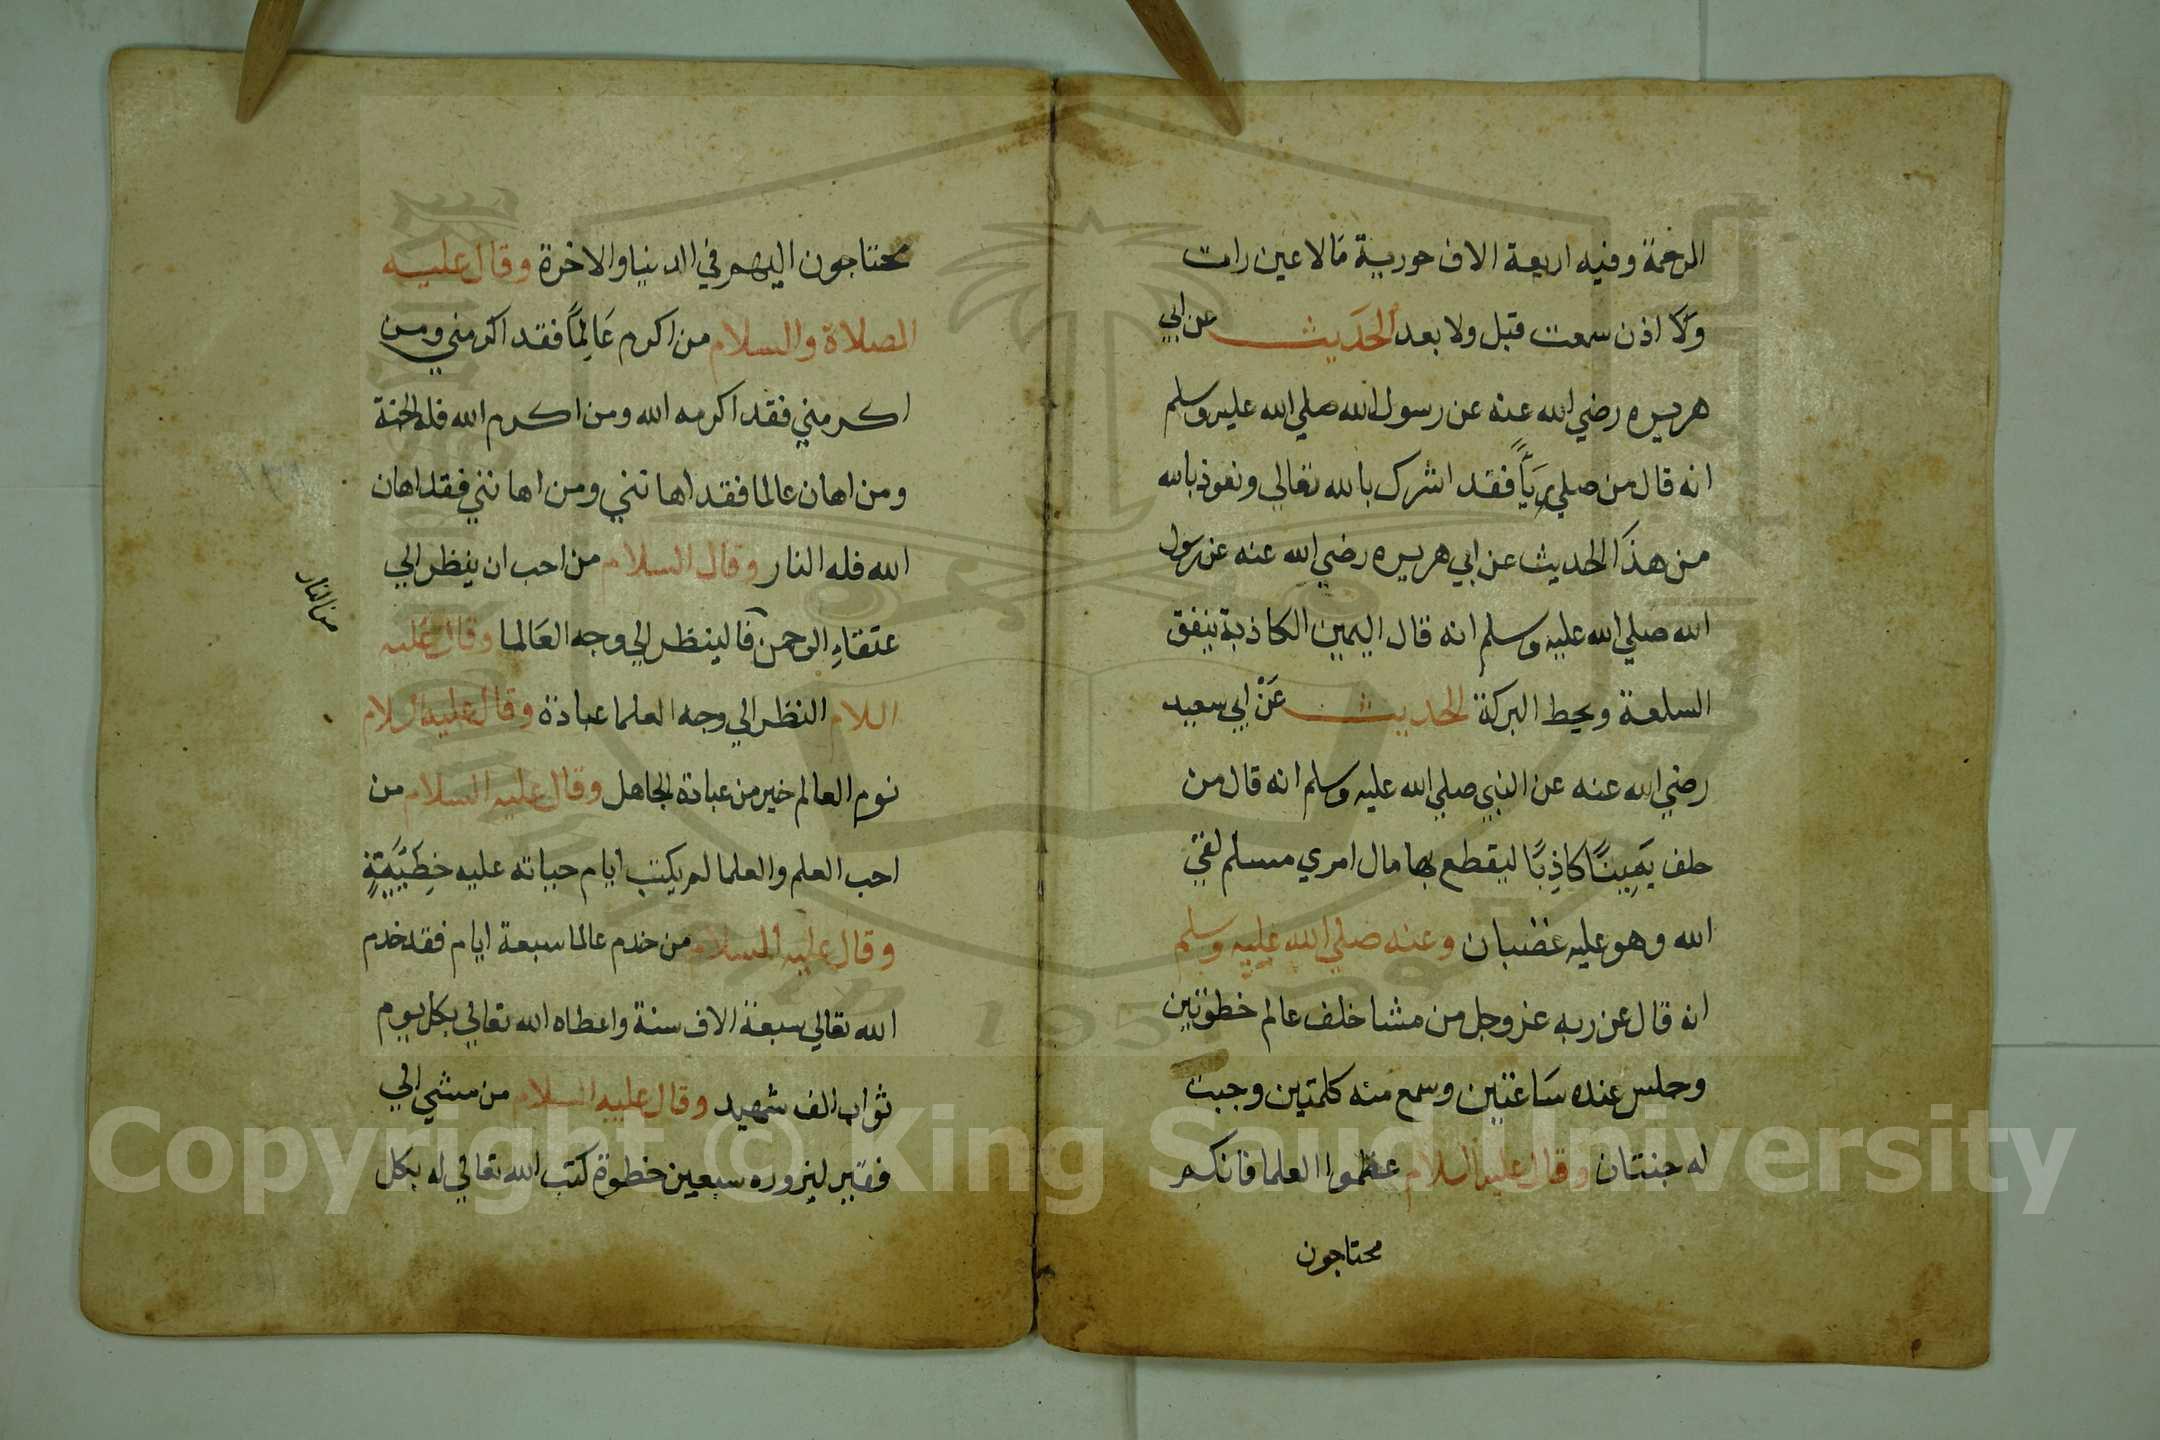 الرحمة وفيه اربعة الاف حورية مالا عين رات
ولا اذن سمعت قبل ولا بعد الحديث عن ابي
هريره رضي الله عنه عن رسول الله صلي الله عليه وسلم
انه قال من صلي رياً فقد اشرك بالله تعالي ونعوذ بالله
من هذا الحديث عن ابي هريره رضي الله عنه عن رسول
الله صلي الله عليه وسلم انه قال اليمين الكاذبة ينفق
السلعة ويحط البركة الحديث عَنْ ابي سعيد
رضي الله عنه عن النبي صلي الله عليه وسلم انه قال من
حلف يَمِينًا كاذِبًا ليقطع بها مال امري مسلم لقي
الله وهو عليه غضبان وعنه صلي الله عليه وسلم
انه قال عن ربه عز وجل من مشا خلف عالم خطوتين
وجلس عنده سَاعتين وسمع منه كلمتين وجبت
له جنتان وقال عليه السلام عظموا العلما فانكم
محتاجون
محتاجون اليهم في الدنيا والاخرة وقال عليه
الصلاة والسلام من اكرم عَالِمًا فقد اكرمني ومن
اكرمني فقد اكرمه الله ومن اكرم الله فله الجنة
ومن اهان عالما فقد اهانني ومن اهانني فقد اهان
الله فله النار وقال السلام من احب ان ينظر الي
عتقاءِ الرحمن فالينظر الي وجه العَالما وقال عليه
من النار
السلام النظر الي وجه العلما عبادة وقال عليه السلام
نوم العالم خير من عبادة الجاهل وقال عليه السلام من
احب العلم والعلما لم يكتب ايام حياته عليه خِطَيَّيَةٍ
وقال عليه السلام من خدم عالما سبعة ايام فقد خدم
الله تعالي سبعة الاف سنة واعطاه الله تعالي بكل يوم
ثواب الف شهيد وقال عليه السلام من مشي الي
فقير ليزوره سبعين خطوة كتب الله تعالي له بكل
Copyright © King Saud University